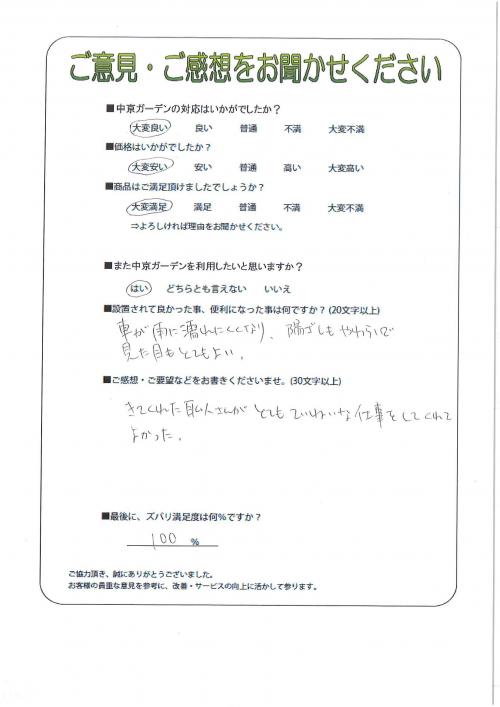 ご意見・ご感想をお聞かせください
■中京ガーデンの対応はいかがでしたか？
大変良い 良い 普通 不満 大変不満
■価格はいかがでしたか？
大変安い 安い 普通 高い 大変高い
■商品はご満足頂けましたでしょうか？
大変満足 満足 普通 不満 大変不満
⇒よろしければ理由をお聞かせください。
■また中京ガーデンを利用したいと思いますか？
はい どちらとも言えない いいえ
■設置されて良かった事、便利になった事は何ですか？(20文字以上)
車が雨に濡れにくくなり、陽ざしもやわらいで
見た目もとてもよい。
■ご感想・ご要望などをお書きくださいませ。(30文字以上)
きてくれた職人さんがとてもていねいな仕事をしてくれて
よかった。
■最後に、ズバリ満足度は何％ですか？
100 %
ご協力頂き、誠にありがとうございました。
お客様の貴重な意見を参考に、改善・サービスの向上に活かして参ります。